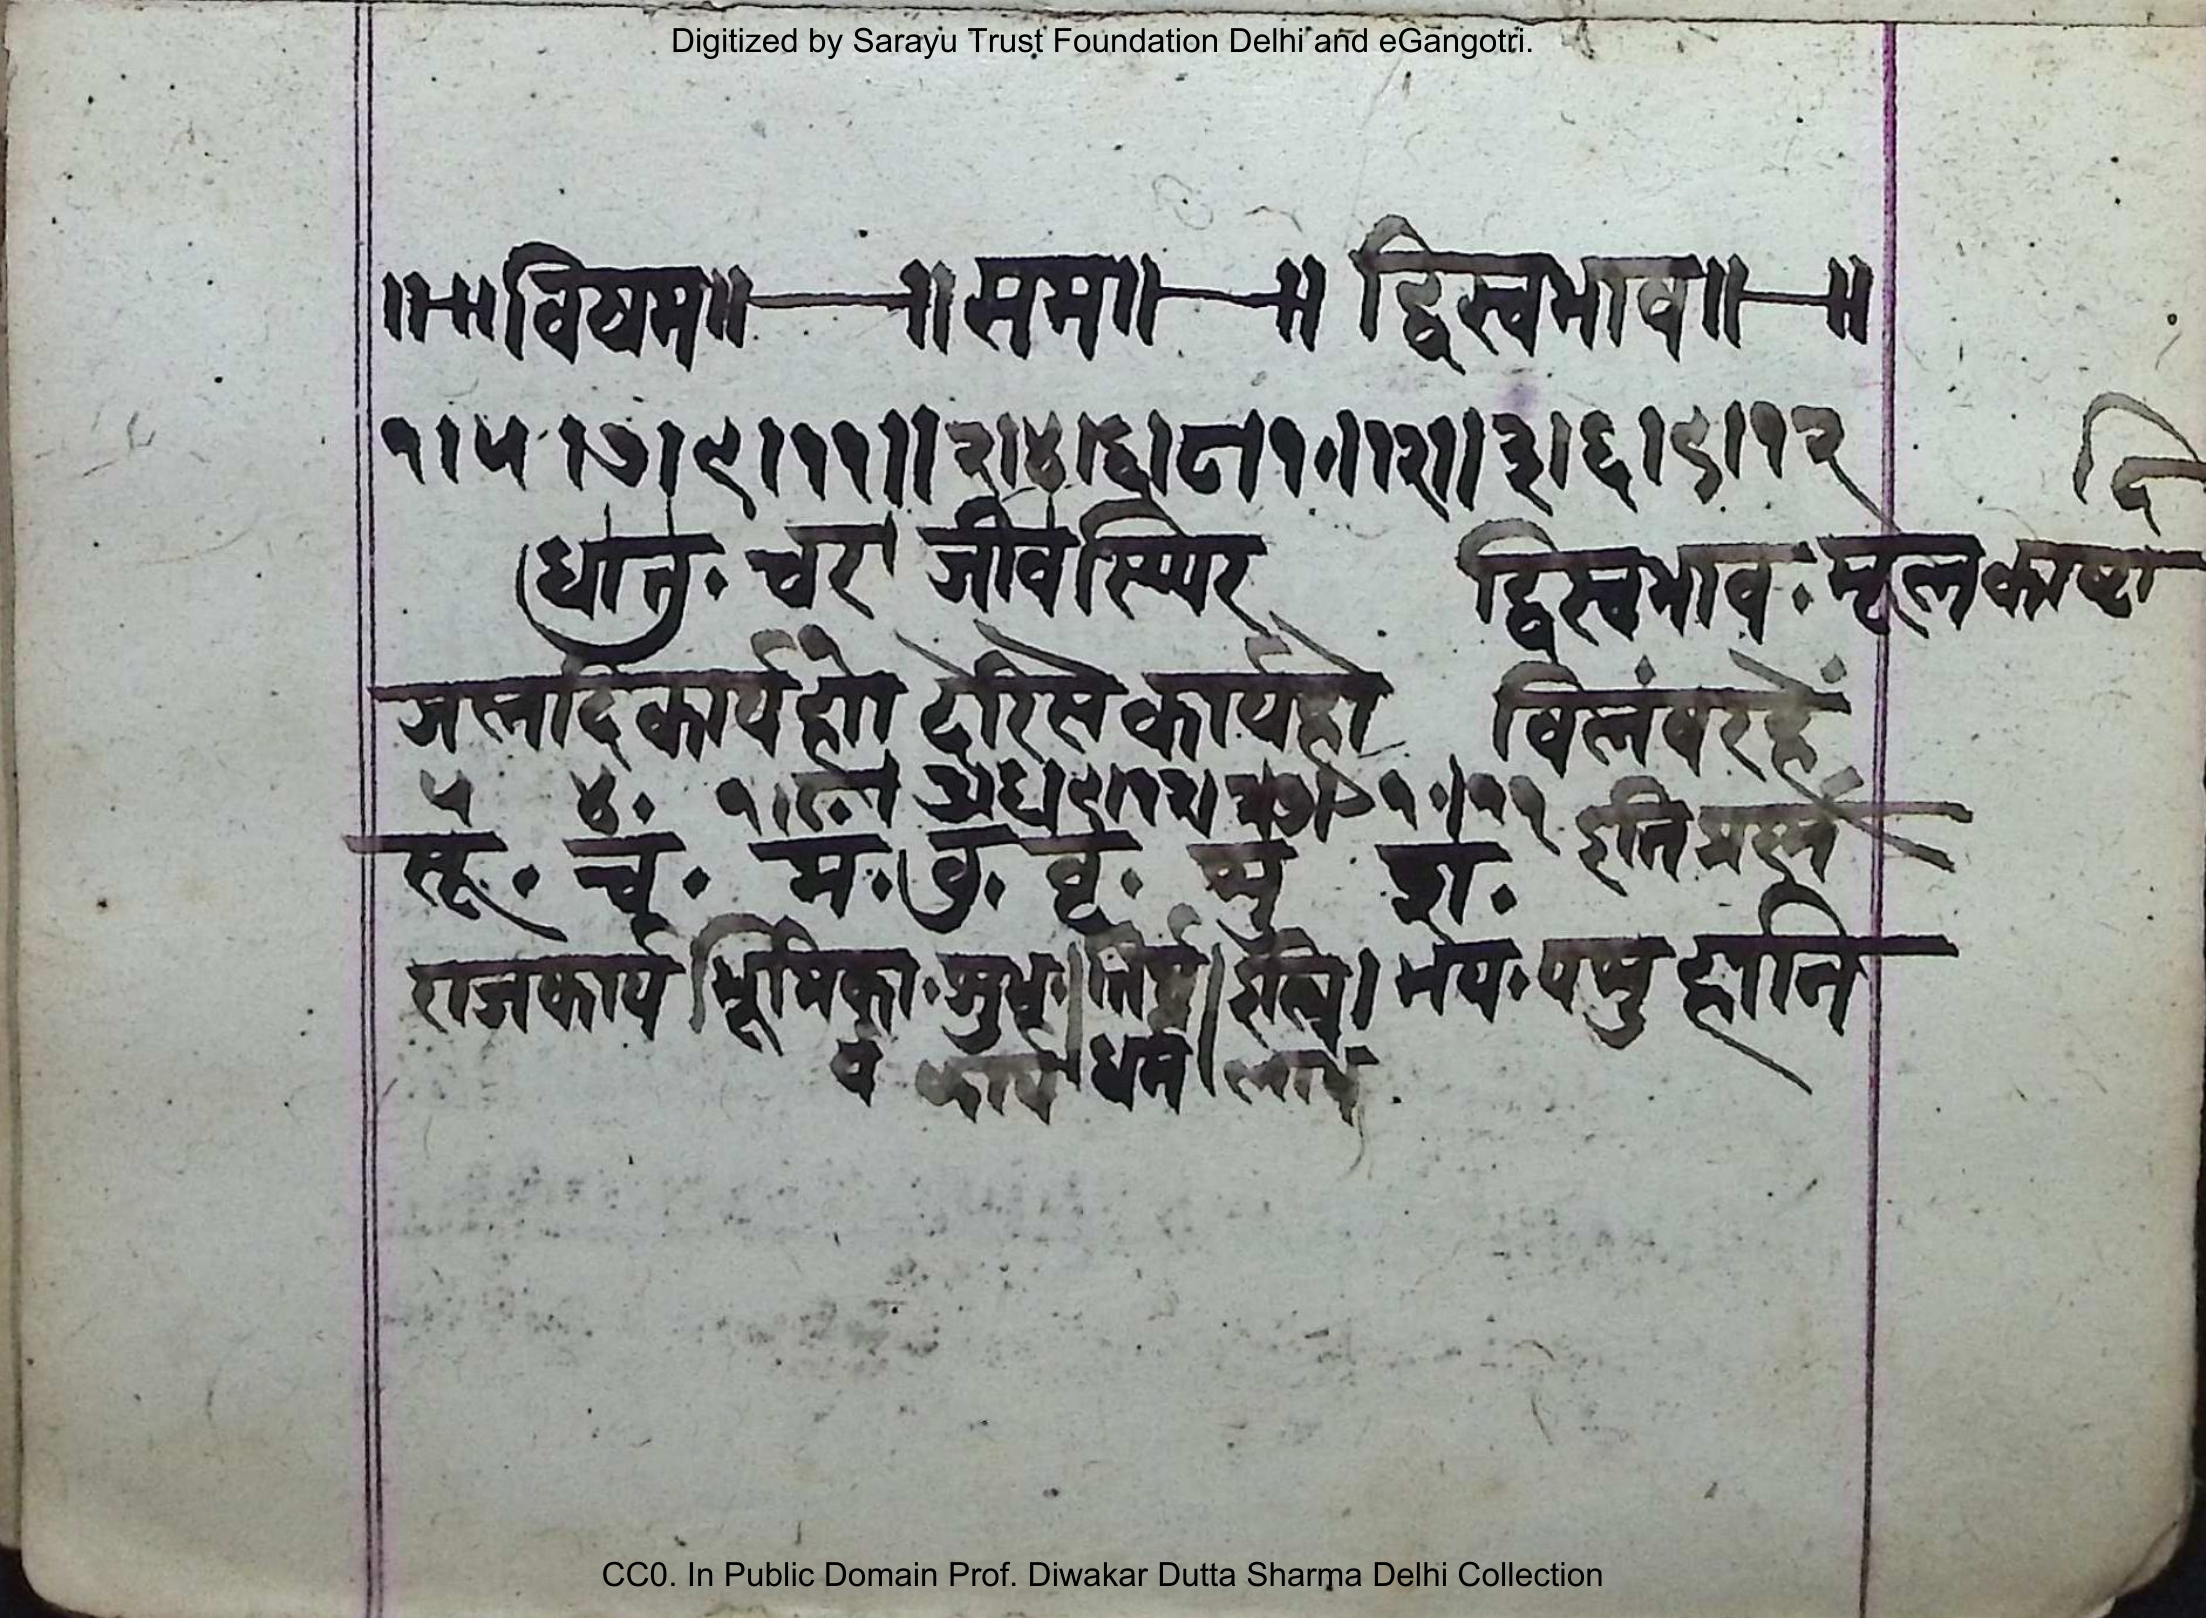 Digitized by Sarayu Trust Foundation Delhi and eGangotri.
॥-॥विषम॥—॥सम॥—॥ द्विस्वभाव॥—॥
१।५।७।९।११॥२।४।६।८।१०।१२॥३।६।९।१२
धातु. चर जीव स्थिर द्विस्वभाव. मूल काष्टा
दि
जलादि कार्य हो देरिसे कार्य हो विलंब रहें
५ ४. १।८. ३।६।९।१२। १०।११ इति प्रस्न
सू. चं. मं. बु. बृ. शु श.
राजकार्य भूमिका. शुभ. इस्त्रि। भय. पशु हानि
व कार्य धर्म लाभ
CC0. In Public Domain Prof. Diwakar Dutta Sharma Delhi Collection